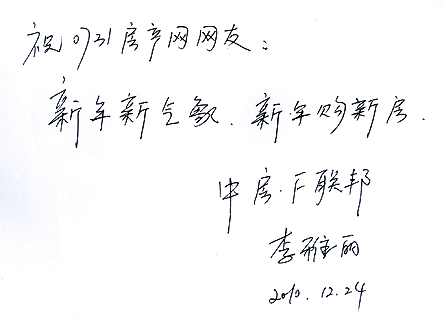 祝0731房产网网友：
新年新气象．新年购新房．
中房·F联邦
李雅丽
2010.12.24